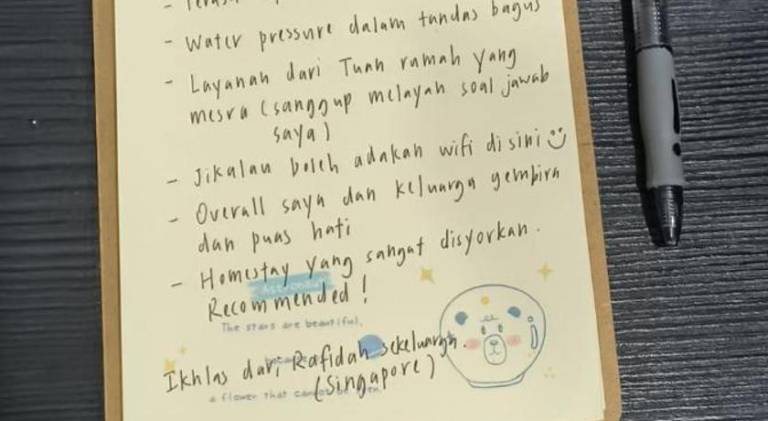 - Water pressure dalam tandas bagus
- Layanan dari Tuan rumah yang
mesra (sanggup melayah soal jawab
saya)
- Jikalau boleh adakah wifi disini
- Overall saya dan keluarga gembira
dan puas hati
- Homestay yang sangat disyorkan.
Recommended!
The stars are beautiful,
Ikhlas dari Rafidah sekeluarga.
(Singapore)
a flower that cannot be